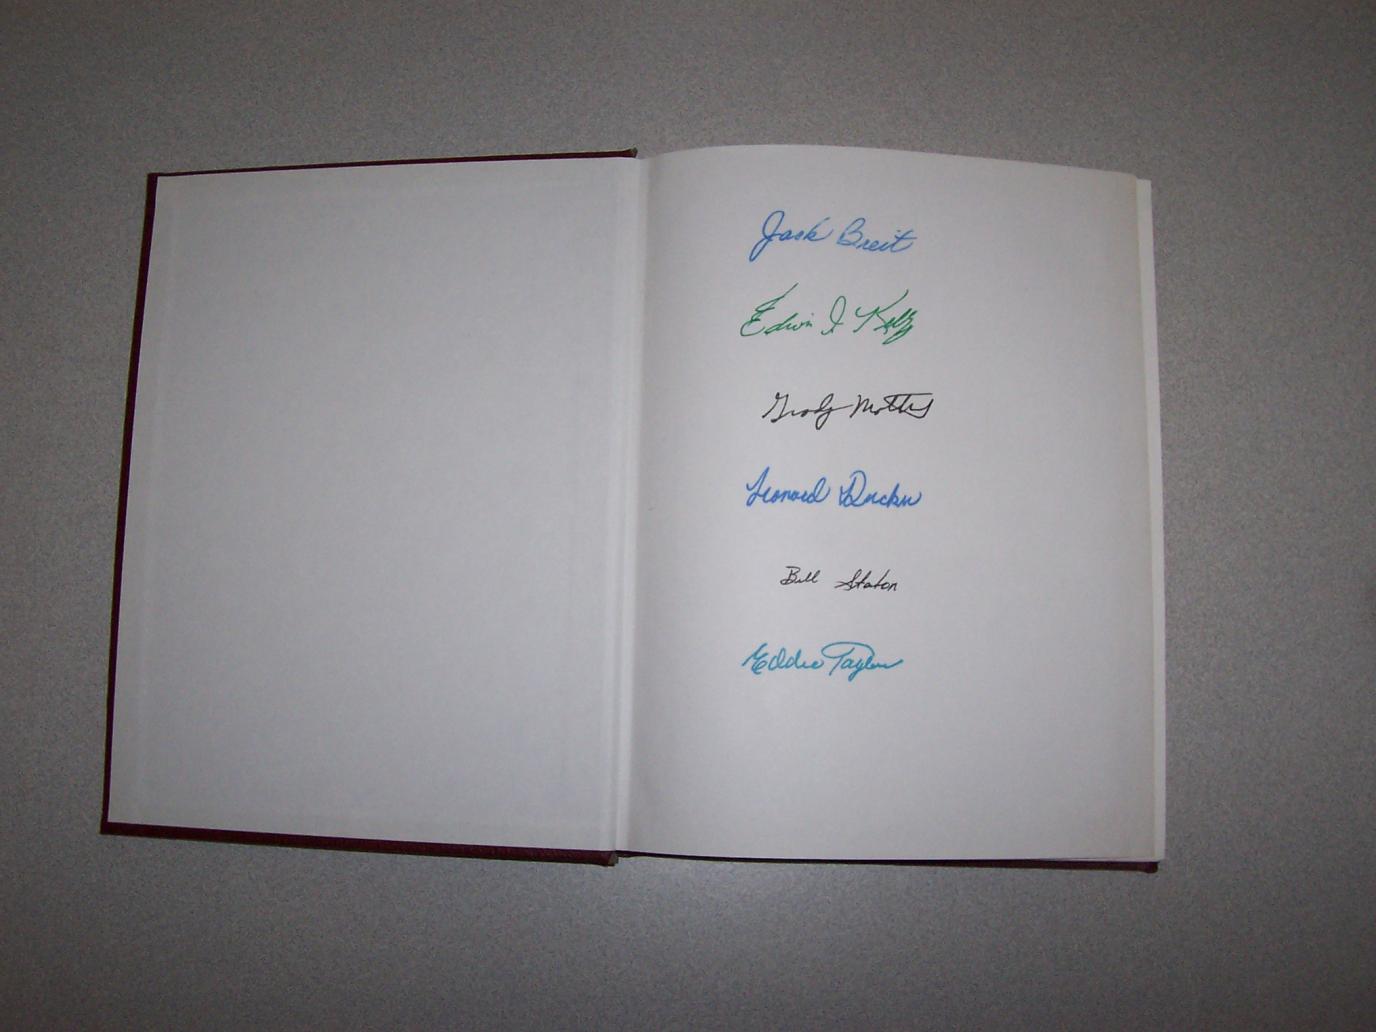 Jack Breit
Edwin J Kelly
Grady Mottes
Leonard Drucker
Bill Staton
Eddie Taylor